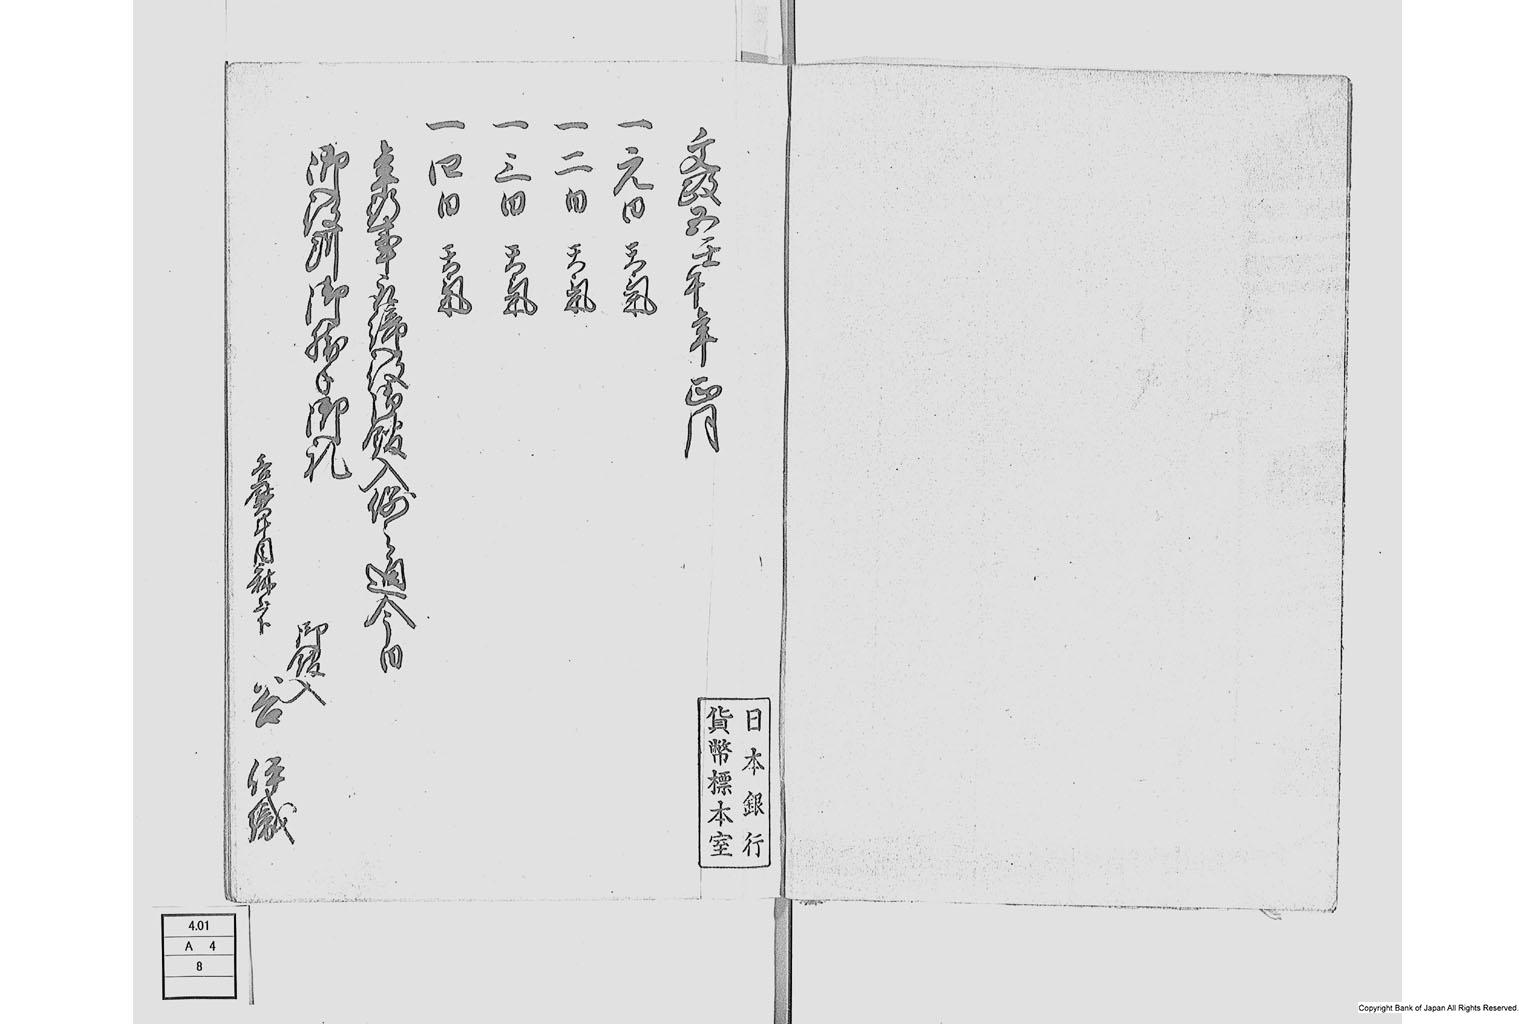 文政五壬午年正月
一元日 天氣
一二日 天氣
一三日 天氣
一四日 天氣
年 入例之通今日
御役所御勝手御礼
御館入
谷 伊織
日本銀行
貨幣標本室
4.01
A 4
8
Copyright Bank of Japan All Rights Reserved.